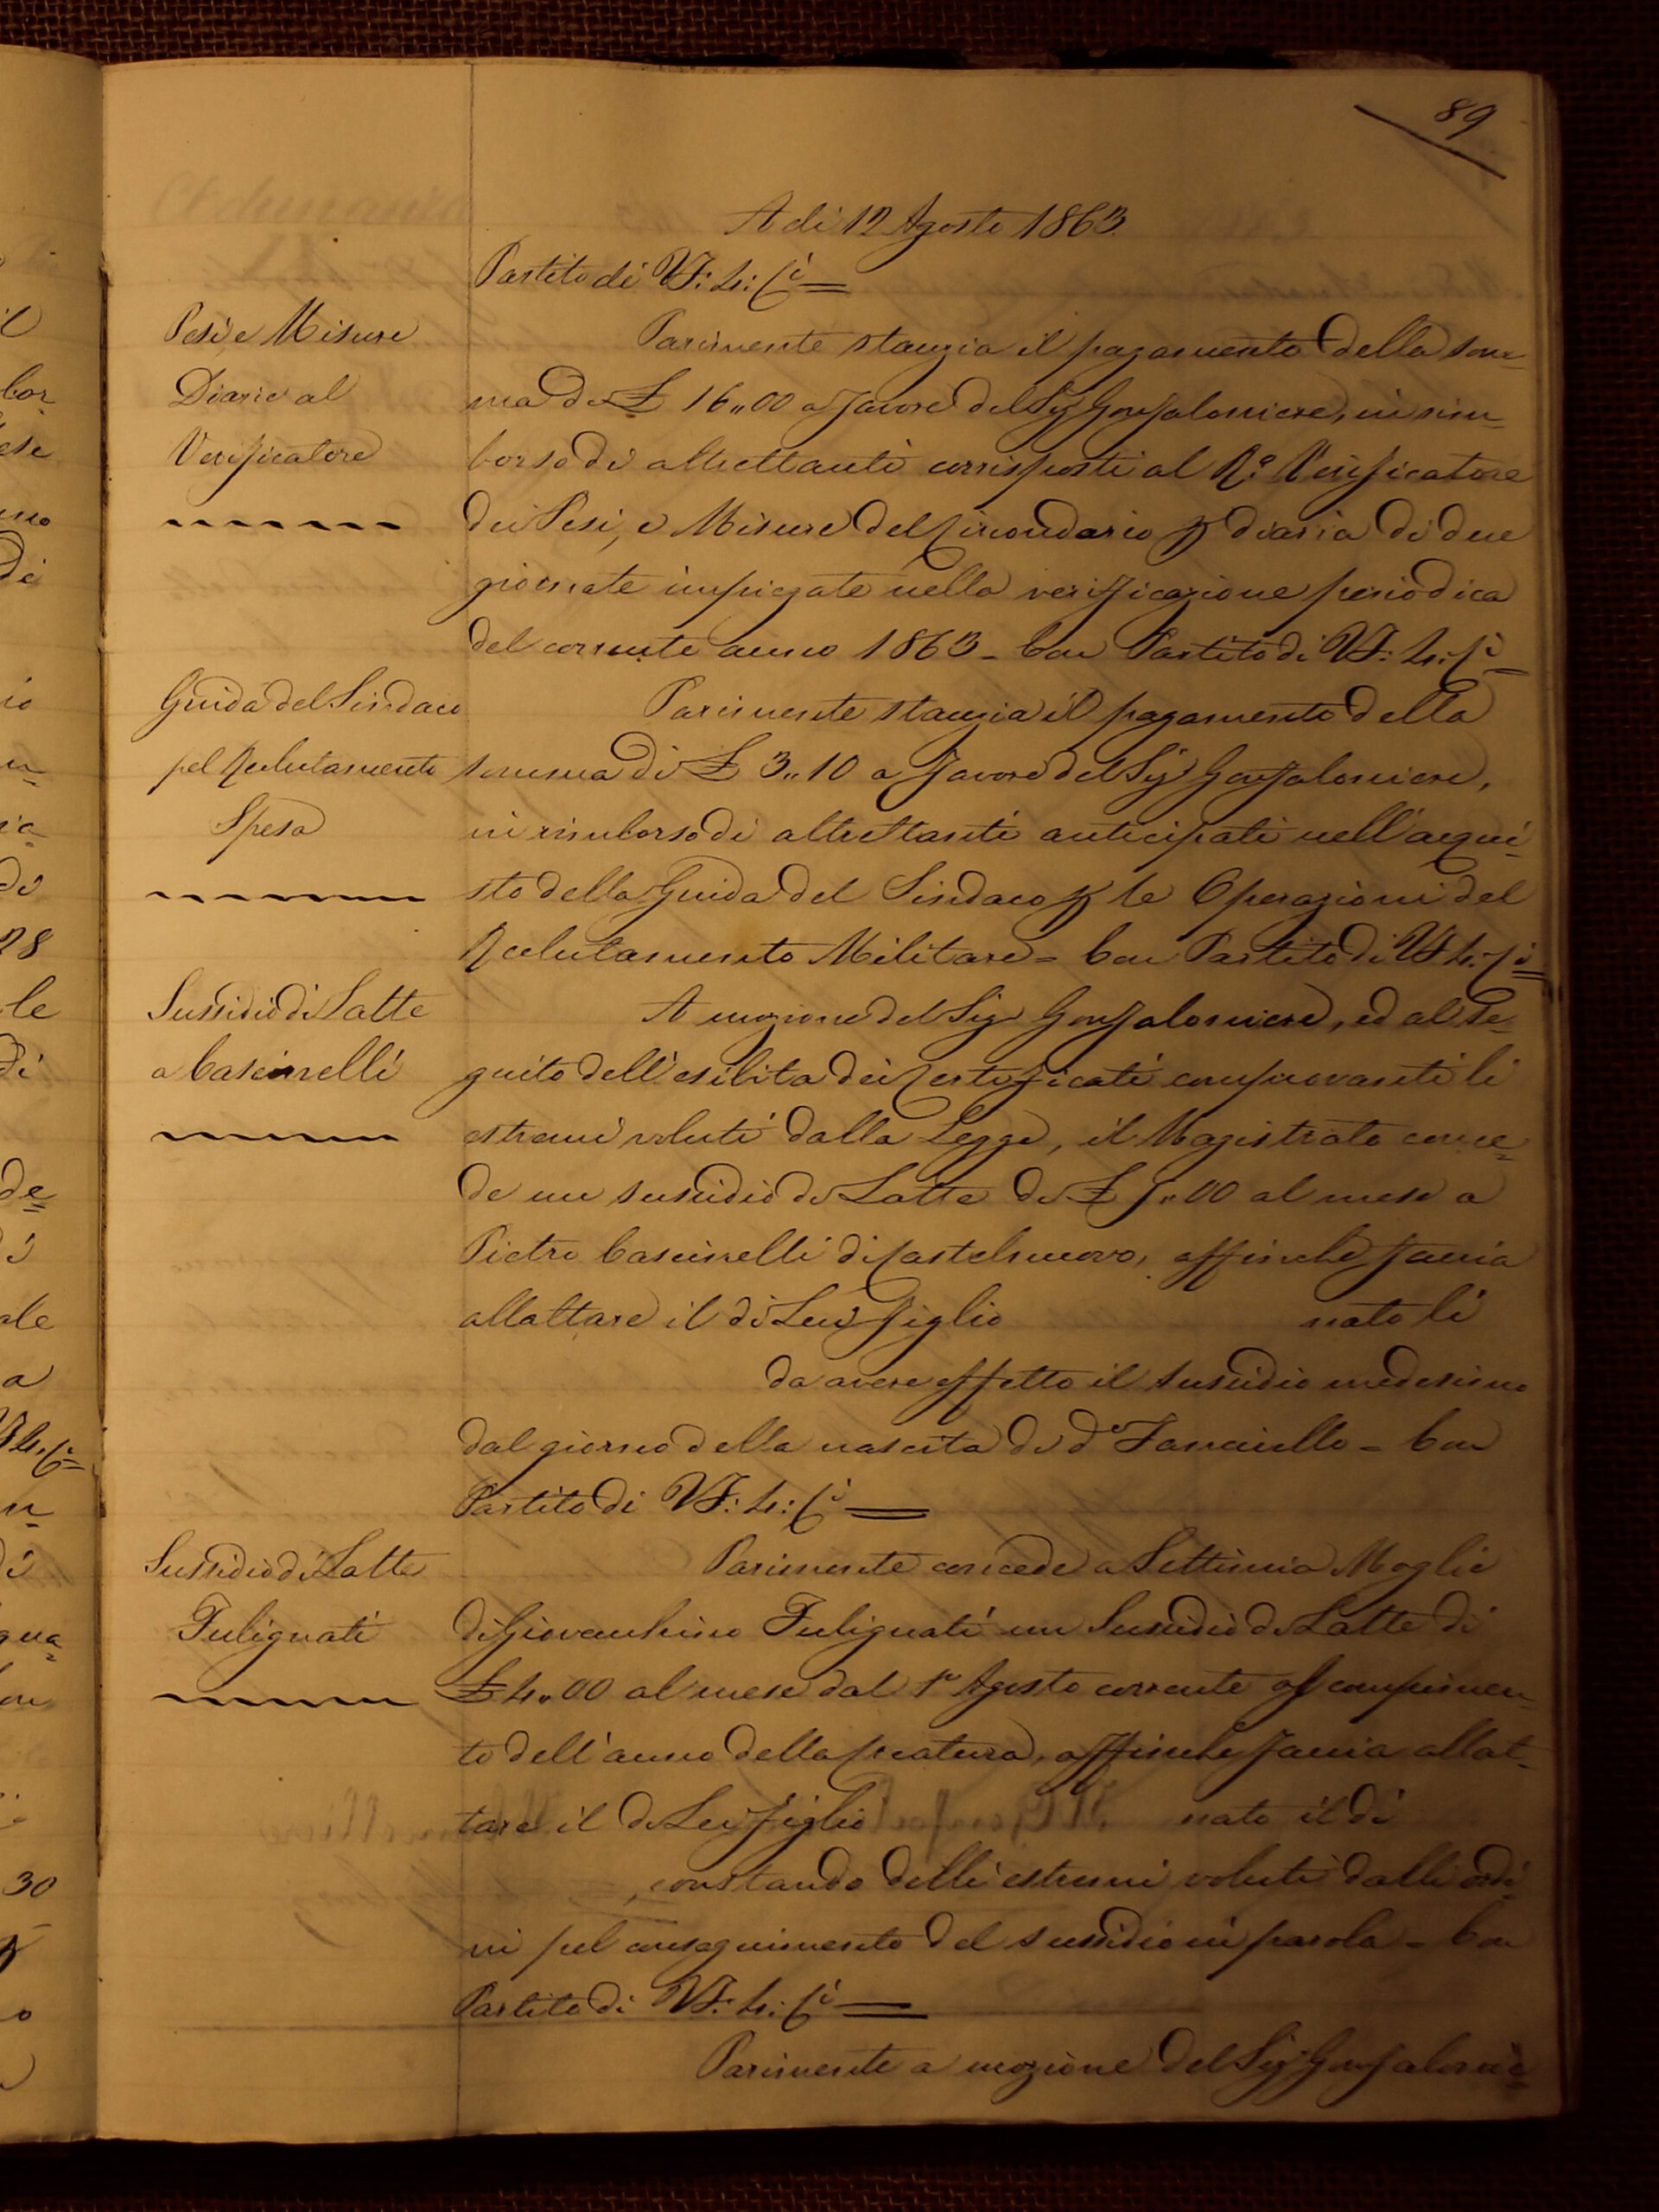 89
A di 12 Agosto 1863.
Partito di VF: 4: Ci
Pesi e Misure
Diarie al
Verificatore
Parimente stanzia il pagamento della som-
ma di £ 16,,00 a favore del Sig Gonfaloniere, in rim-
borso di altrettanti corrisposti al R.o Verificatore
dei Pesi, e Misure del Circondario p diaria di due
giornate impiegate nella verificazione periodica
del corrente anno 1863 - Con Partito di VF: 4: Ci
Guida del Sindaco
pel Reclutamento
Spesa
Parimente stanzia il pagamento della
somma di £ 3,,10 a favore del Sig Gonfaloniere,
in rimborso di altrettanti anticipati nell'acqui-
sto della Guida del Sindaco p le Operazioni del
Reclutamento Militare = Con Partito di VF 4: Ci
Sussidio di Latte
a Cascinelli
A mozione del Sig Gonfaloniere, ed al se-
guito dell'esibita dei Certificati comprovanti li
estremi voluti dalla Legge, il Magistrato conce-
de un sussidio di Latte di £ 5,,00 al mese a
Pietro Cascinelli di Castelnuovo, affinche faccia
allattare il di Lui figlio nato li
da avere effetto il sussidio medesimo
dal giorno della nascita di do Fanciullo = Con
Partito di VF: 4: Ci
Sussidio di Latte
Fulignati
Parimente concede a Settimia Moglie
di Giovacchino Fulignati un Sussidio di Latte di
£ 4,,00 al mese dal 1o Agosto corrente al compimen-
to dell'anno della creatura, affinche faccia allat-
tare il di Lei figlio nato il di
, constando delli estremi voluti dalli ordi-
ni pel conseguimento del sussidio in parola = Con
Partito di VF: 4: Ci
Parimente a mozione del Sig Gonfalonie-